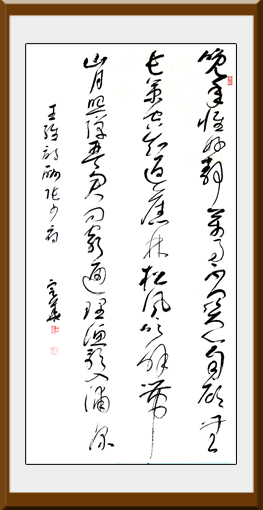 晚年惟好靜萬事不關心自顧無
長策空知返舊林松風吹解帶
山月照彈琴君問窮通理漁歌入浦深
王維詩酬張少府